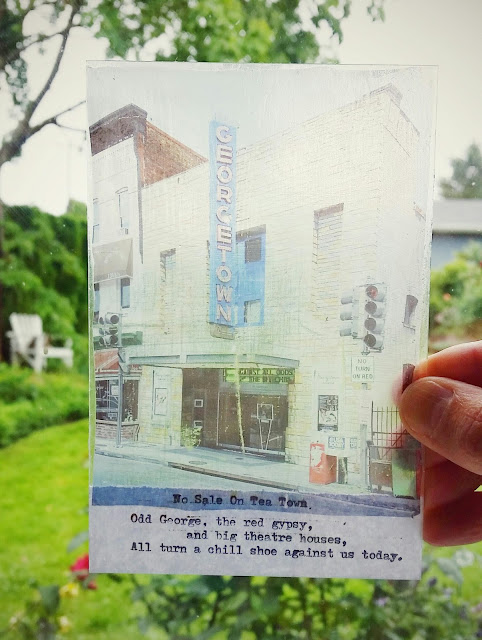 GEORGETOWN
NO
TURN
ON RED
No Sale On Tea Town.
Odd George, the red gypsy,
and big theatre houses,
All turn a chill shoe against us today.